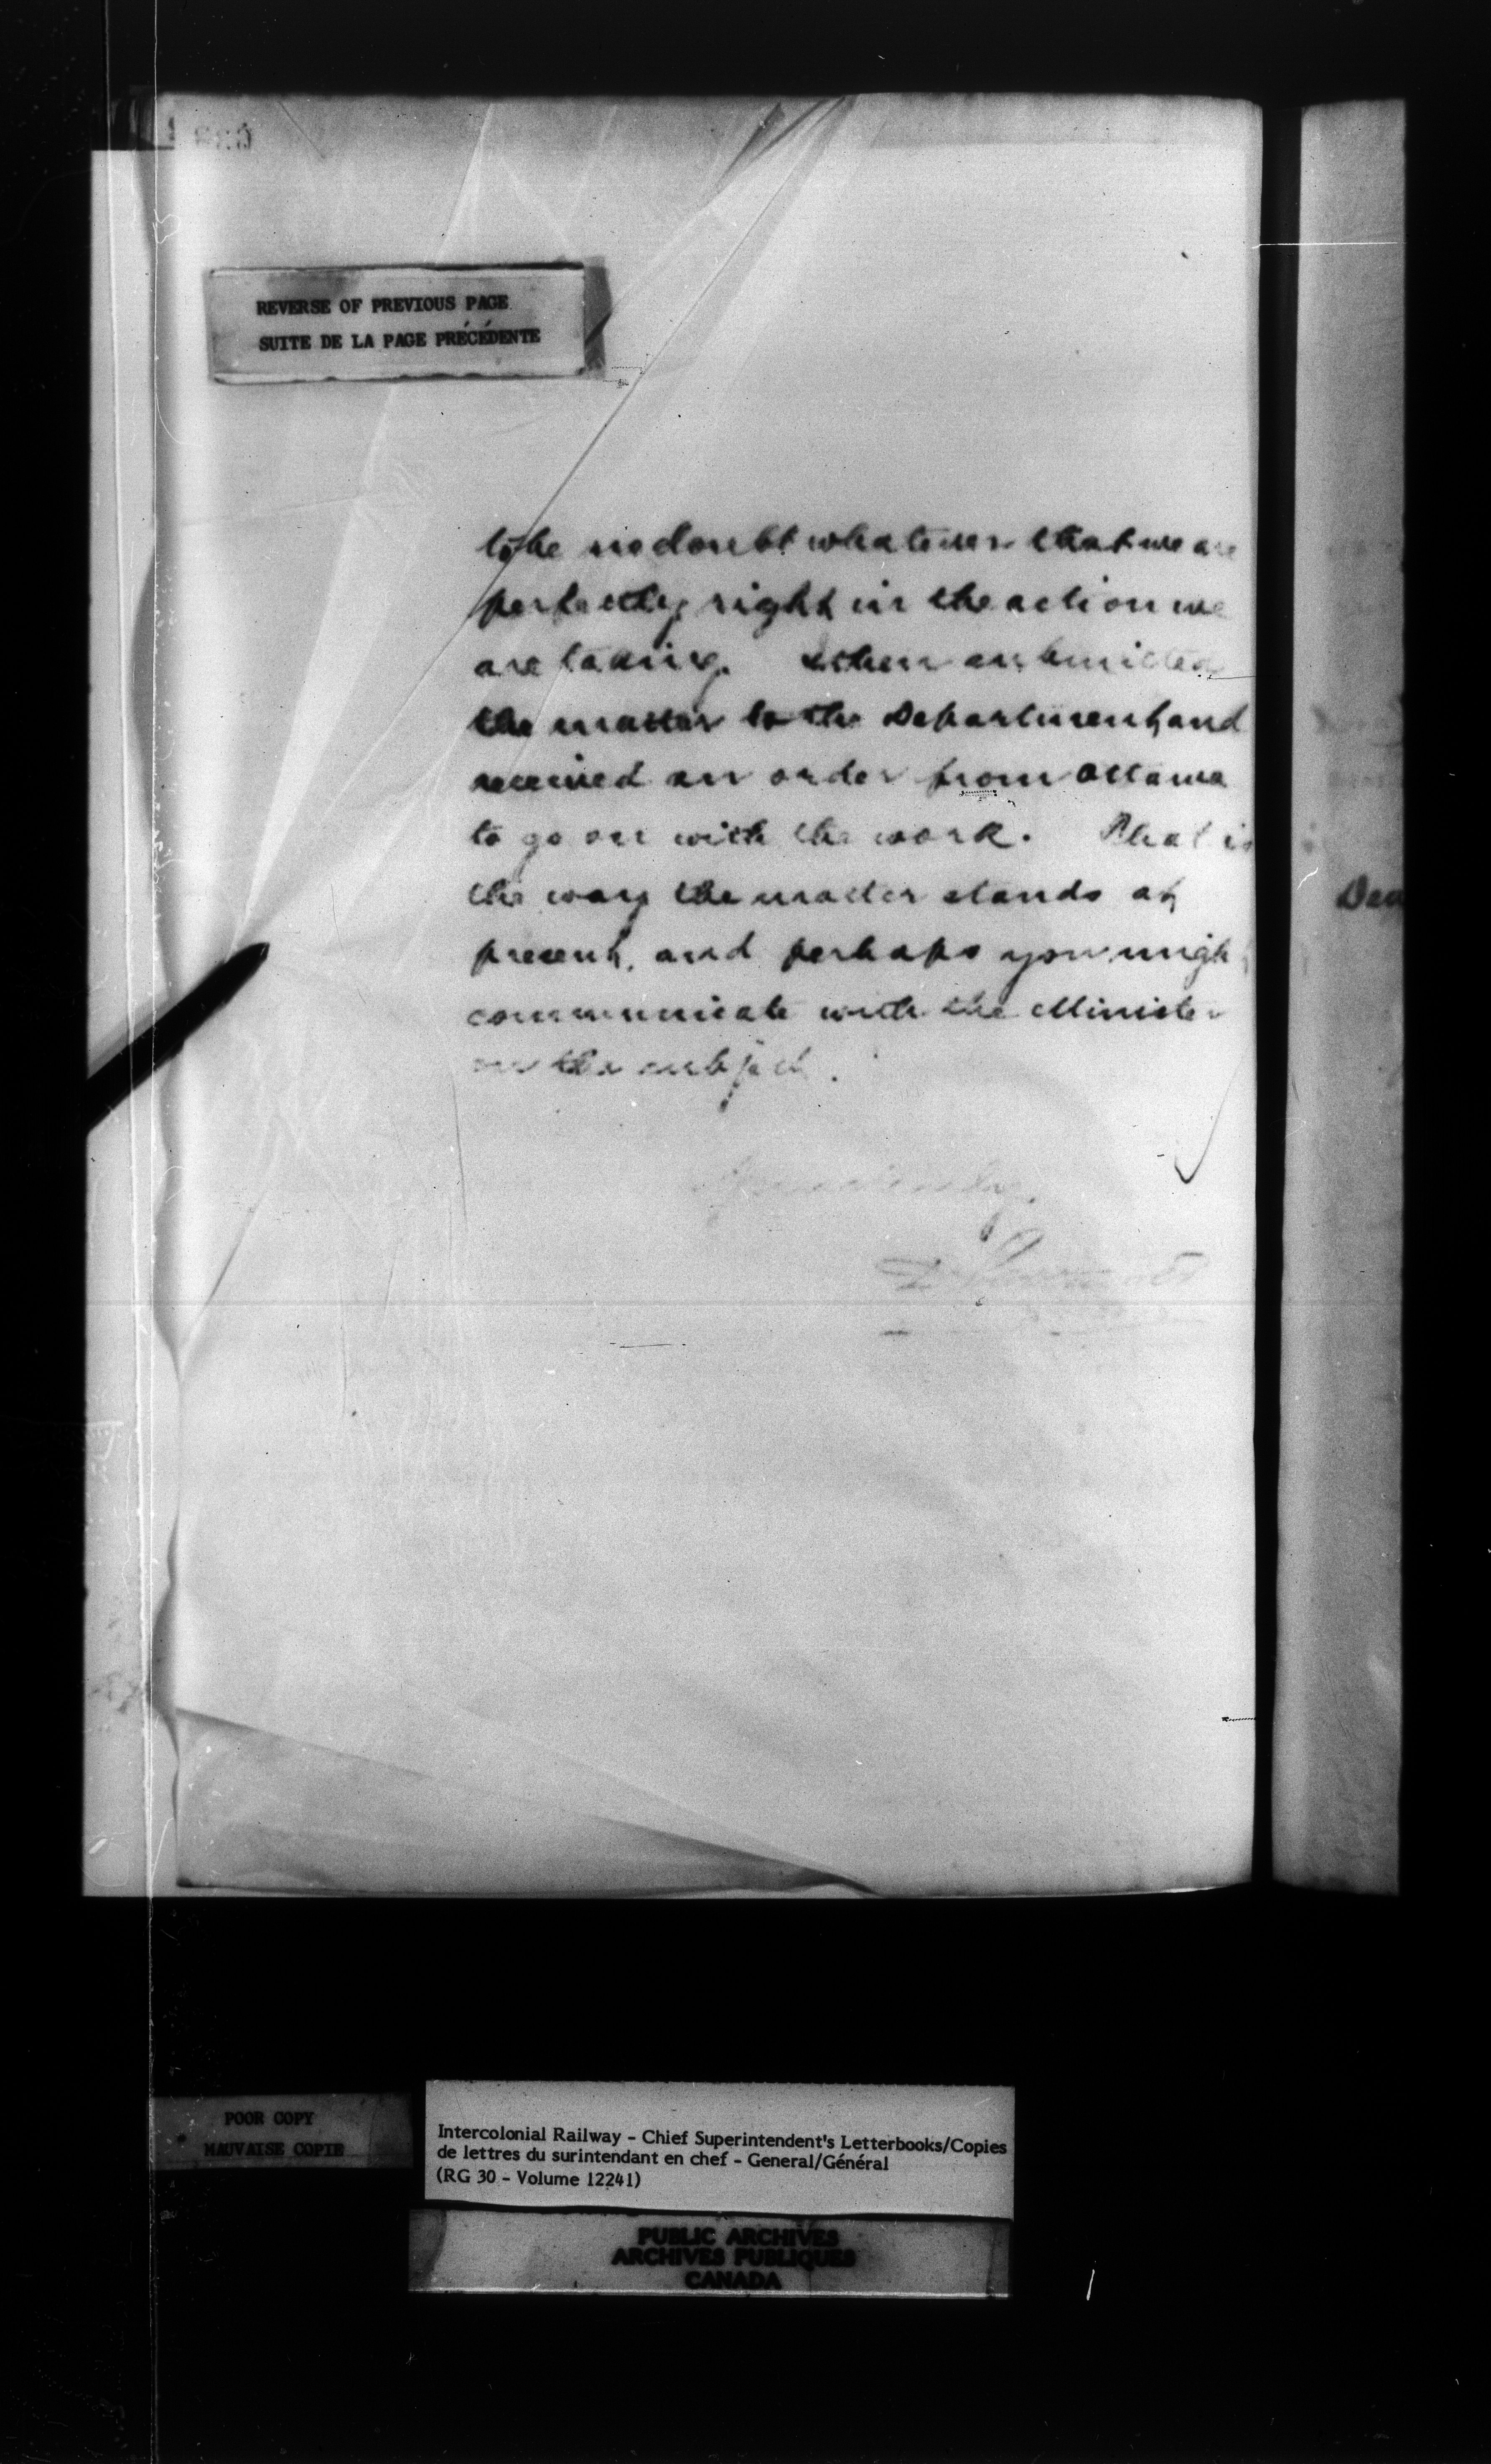 REVERSE OF PREVIOUS PAGE
SUITE DE LA PAGE PRÉCÉDENTE
to be no doubt whatever that we are
perfectly right in the action we
are taking. I then submitted
the matter to the Department and
received an order from Ottawa
to go on with the work. That is
the way the matter stands at
present, and perhaps you might
communicate with the Minister
on the subject.
Yours truly,
Dea
POOR COPY
MAUVAISE COPIE
Intercolonial Railway - Chief Superintendent's Letterbooks/Copies
de lettres du surintendant en chef - General/Général
(RG 30 - Volume 12241)
PUBLIC ARCHIVES
ARCHIVES PUBLIQUES
CANADA